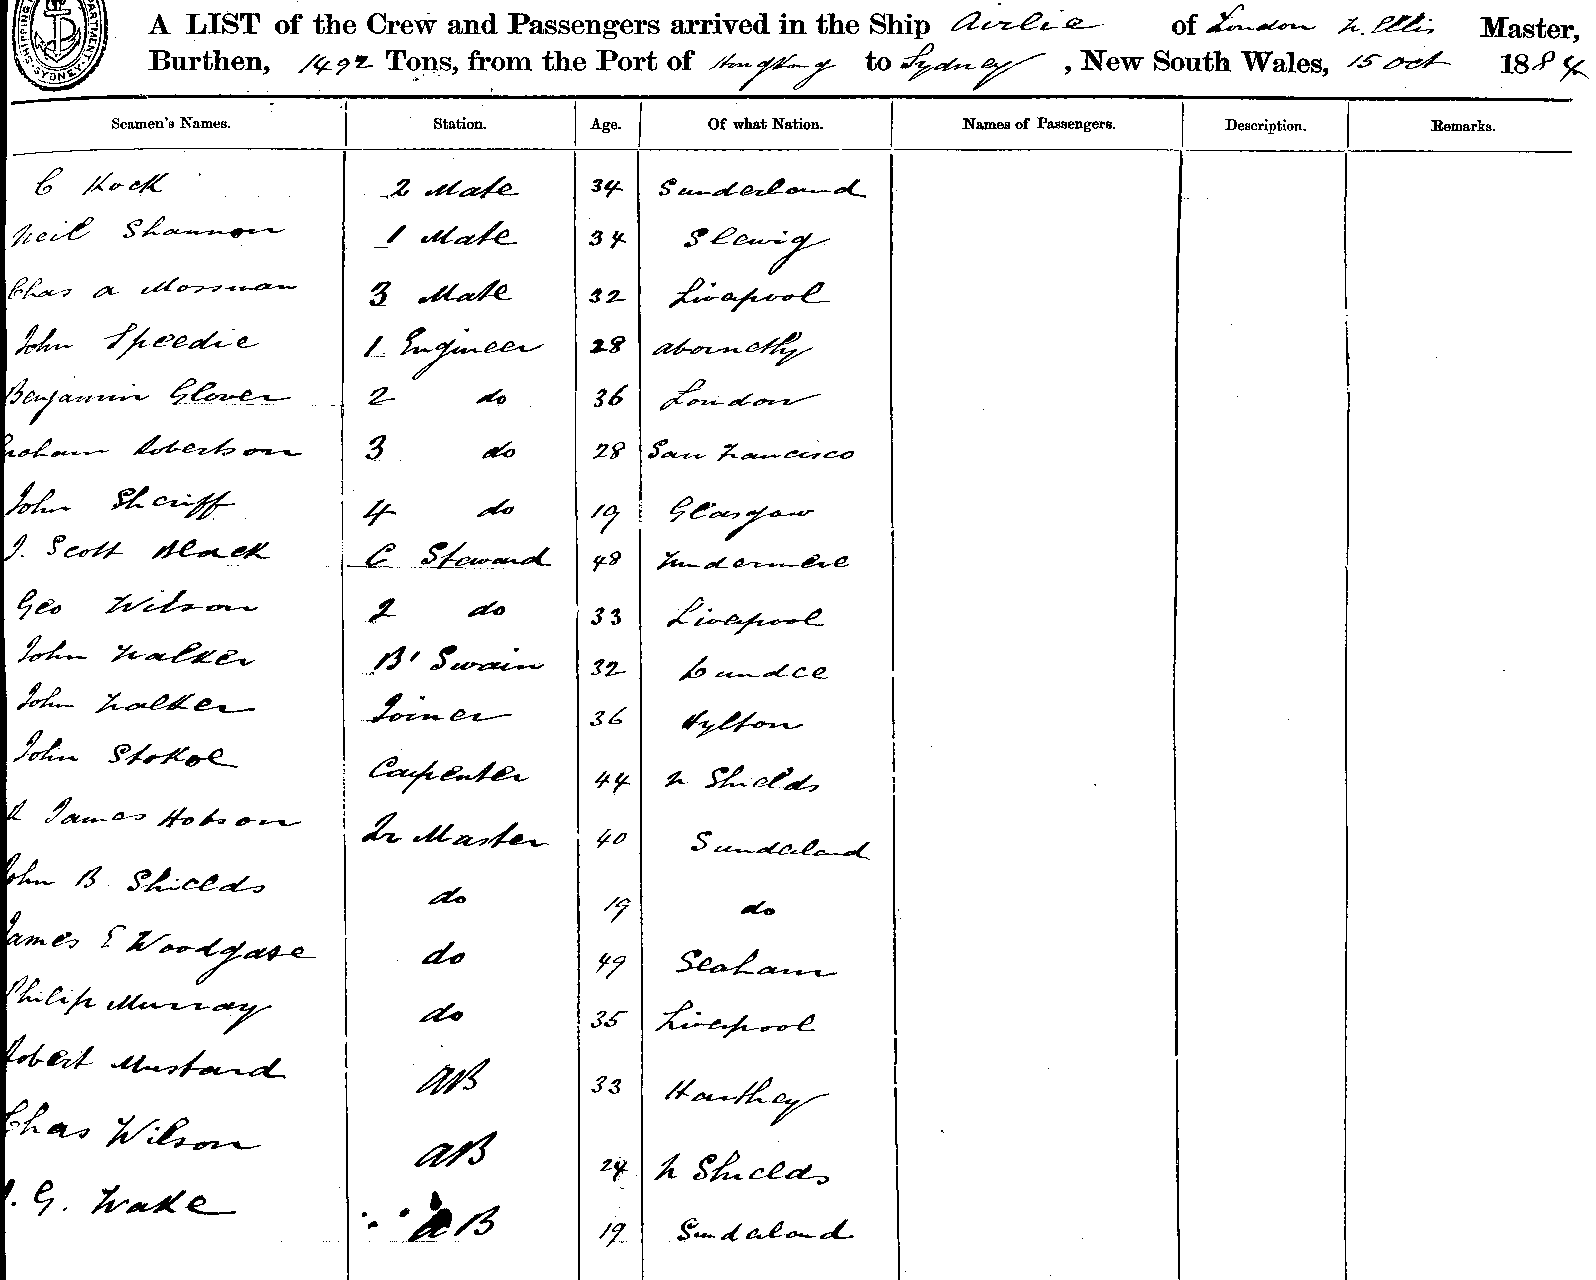 A LIST of the Crew and Passengers arrived in the Ship Airlie of London W. Ellis Master,
Burthen, 1492 Tons, from the Port of Hong Kong to Sydney, New South Wales, 15 Oct 1884
Seamen's Names. Station. Age. Of what Nation. Names of Passengers. Description. Remarks.
C Kock 2 Mate 34 Sunderland
Neil Shannon 1 Mate 34 Sleswig
Chas A Mossman 3 Mate 32 Liverpool
John Speedie 1 Engineer 28 Abernethy
Benjamin Glover 2 do 36 London
Graham Robertson 3 do 28 San Francisco
John Sheriff 4 do 19 Glasgow
J. Scott Black C Steward 48 Windermere
Geo Wilson 2 do 33 Liverpool
John Walker B' Swain 32 Dundee
John Walker Joiner 36 Hylton
John Stokoe Carpenter 44 N Shields
R James Hobson Qr Master 40 Sunderland
John B. Shields do 19 do
James E Woodgate do 49 Seaham
Philip Murray do 35 Liverpool
Robert Mustard AB 33 Harthey
Chas Wilson AB 24 N Shields
G. Wake AB 19 Sunderland